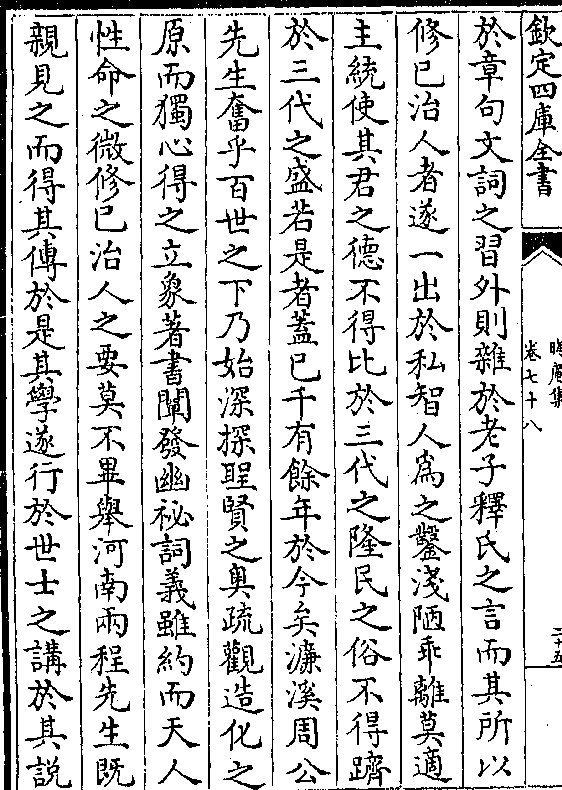 欽定四庫全書
晦庵集
卷七十八
二十五
於章句文詞之習外則雜於老子釋氏之言而其所以
修已治人者遂一出於私智人為之鑿淺陋乖離莫適
主統使其君之德不得比於三代之隆民之俗不得躋
於三代之盛若是者蓋已千有餘年於今矣濂溪周公
先生奮乎百世之下乃始深探聖賢之奥疏觀造化之
原而獨心得之立象著書闡發幽祕詞義雖約而天人
性命之微修已治人之要莫不畢舉河南兩程先生既
親見之而得其傳於是其學遂行於世士之講於其説